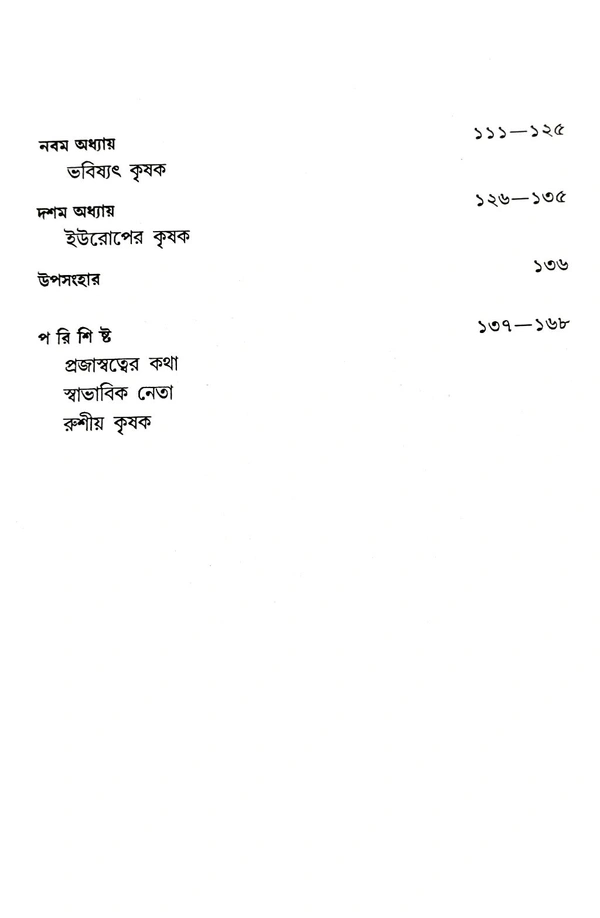 নবম অধ্যায় ১১১—১২৫
ভবিষ্যৎ কৃষক
দশম অধ্যায় ১২৬—১৩৫
ইউরোপের কৃষক
উপসংহার ১৩৬
প রি শি ষ্ট ১৩৭—১৬৮
প্রজাস্বত্বের কথা
স্বাভাবিক নেতা
রুশীয় কৃষক